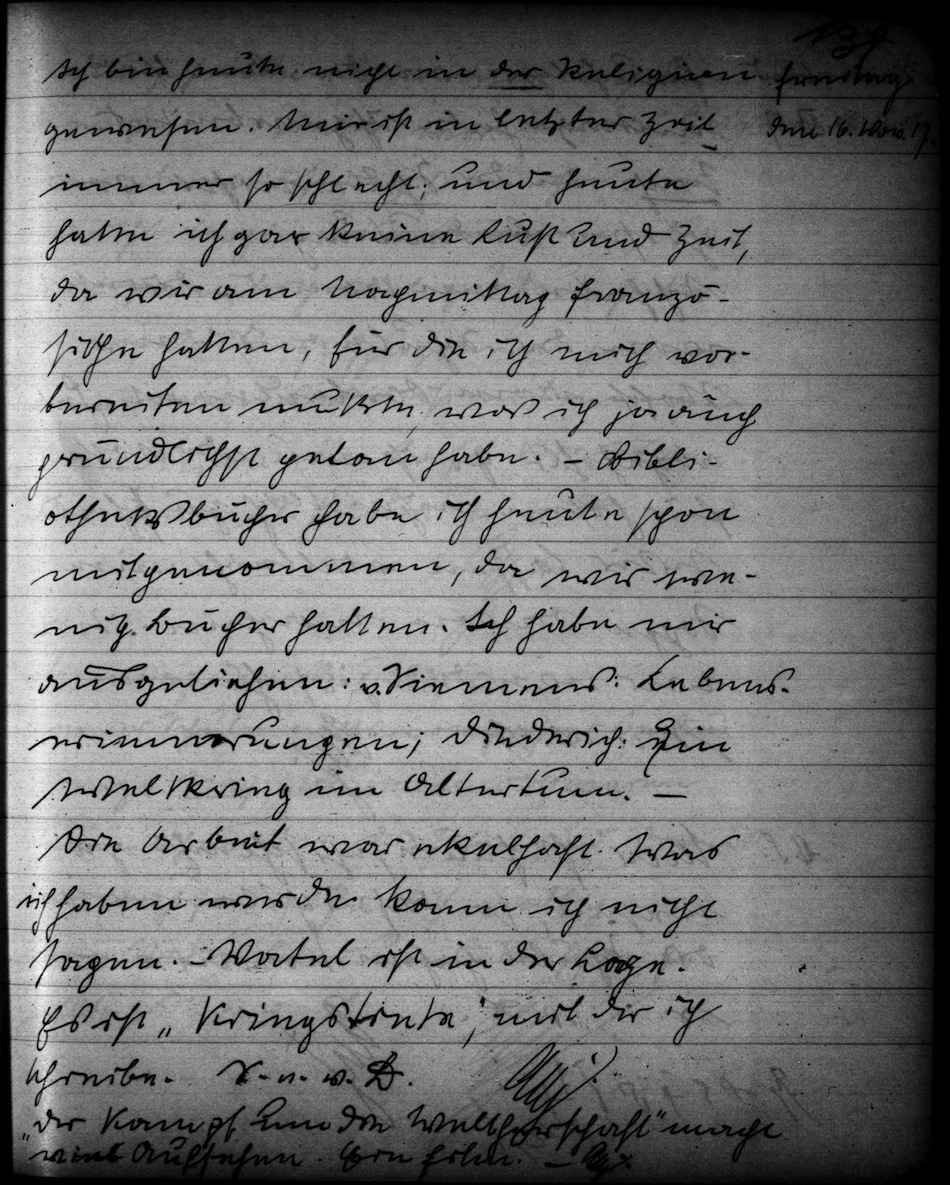 139
Ich bin heute nicht in der Religion
Freitag
den 16. Nov. 17.
gewesen. Mir ist in letzter Zeit
immer so schlecht; und heute
hatte ich gar keine Lust und Zeit,
da wir am Nachmittag franzö-
sische hatten, für die ich mich vor-
bereiten mußte, was ich ja auch
gründlichst getan habe. – Bibli-
otheksbücher habe ich heute schon
mitgenommen, da wir we-
nig Bücher hatten. Ich habe mir
ausgeliehen: v. Siemens: Lebens-
erinnerungen; Diederich: Ein
Weltkrieg im Altertum. –
Die Arbeit war ekelhaft. Was
ich haben werde kann ich nicht
sagen. – Vatel ist in der Lage.
Es ist „Kriegstinte", mit der ich
schreibe. V. u. w. D.
„Der Kampf um die Weltherrschaft" macht
viel Aufsehen. Ein Film. –